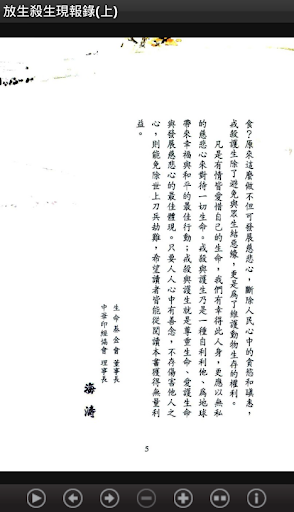 放生殺生現報錄(上)
食?原來這麼做不但可發展慈悲心,斷除人民心中的貪慾和瞋恚,
戒殺護生除了避免與眾生結惡緣,更是為了維護動物生存的權利。
凡是有情皆愛惜自己的生命,我們有幸得此人身,更應以無私
的慈悲心來對待一切生命。戒殺與護生乃是一種自利利他、為地球
帶來幸福與和平的最佳行動;戒殺與護生就是尊重生命、愛護生命
與發展慈悲心的最佳體現。只要人人心中有善念,不存傷害他人之
心,則能免除世上刀兵劫難,希望讀者皆能從閱讀本書獲得無量利
益。
生命基金會 董事長
中華印經協會 理事長
海濤
5